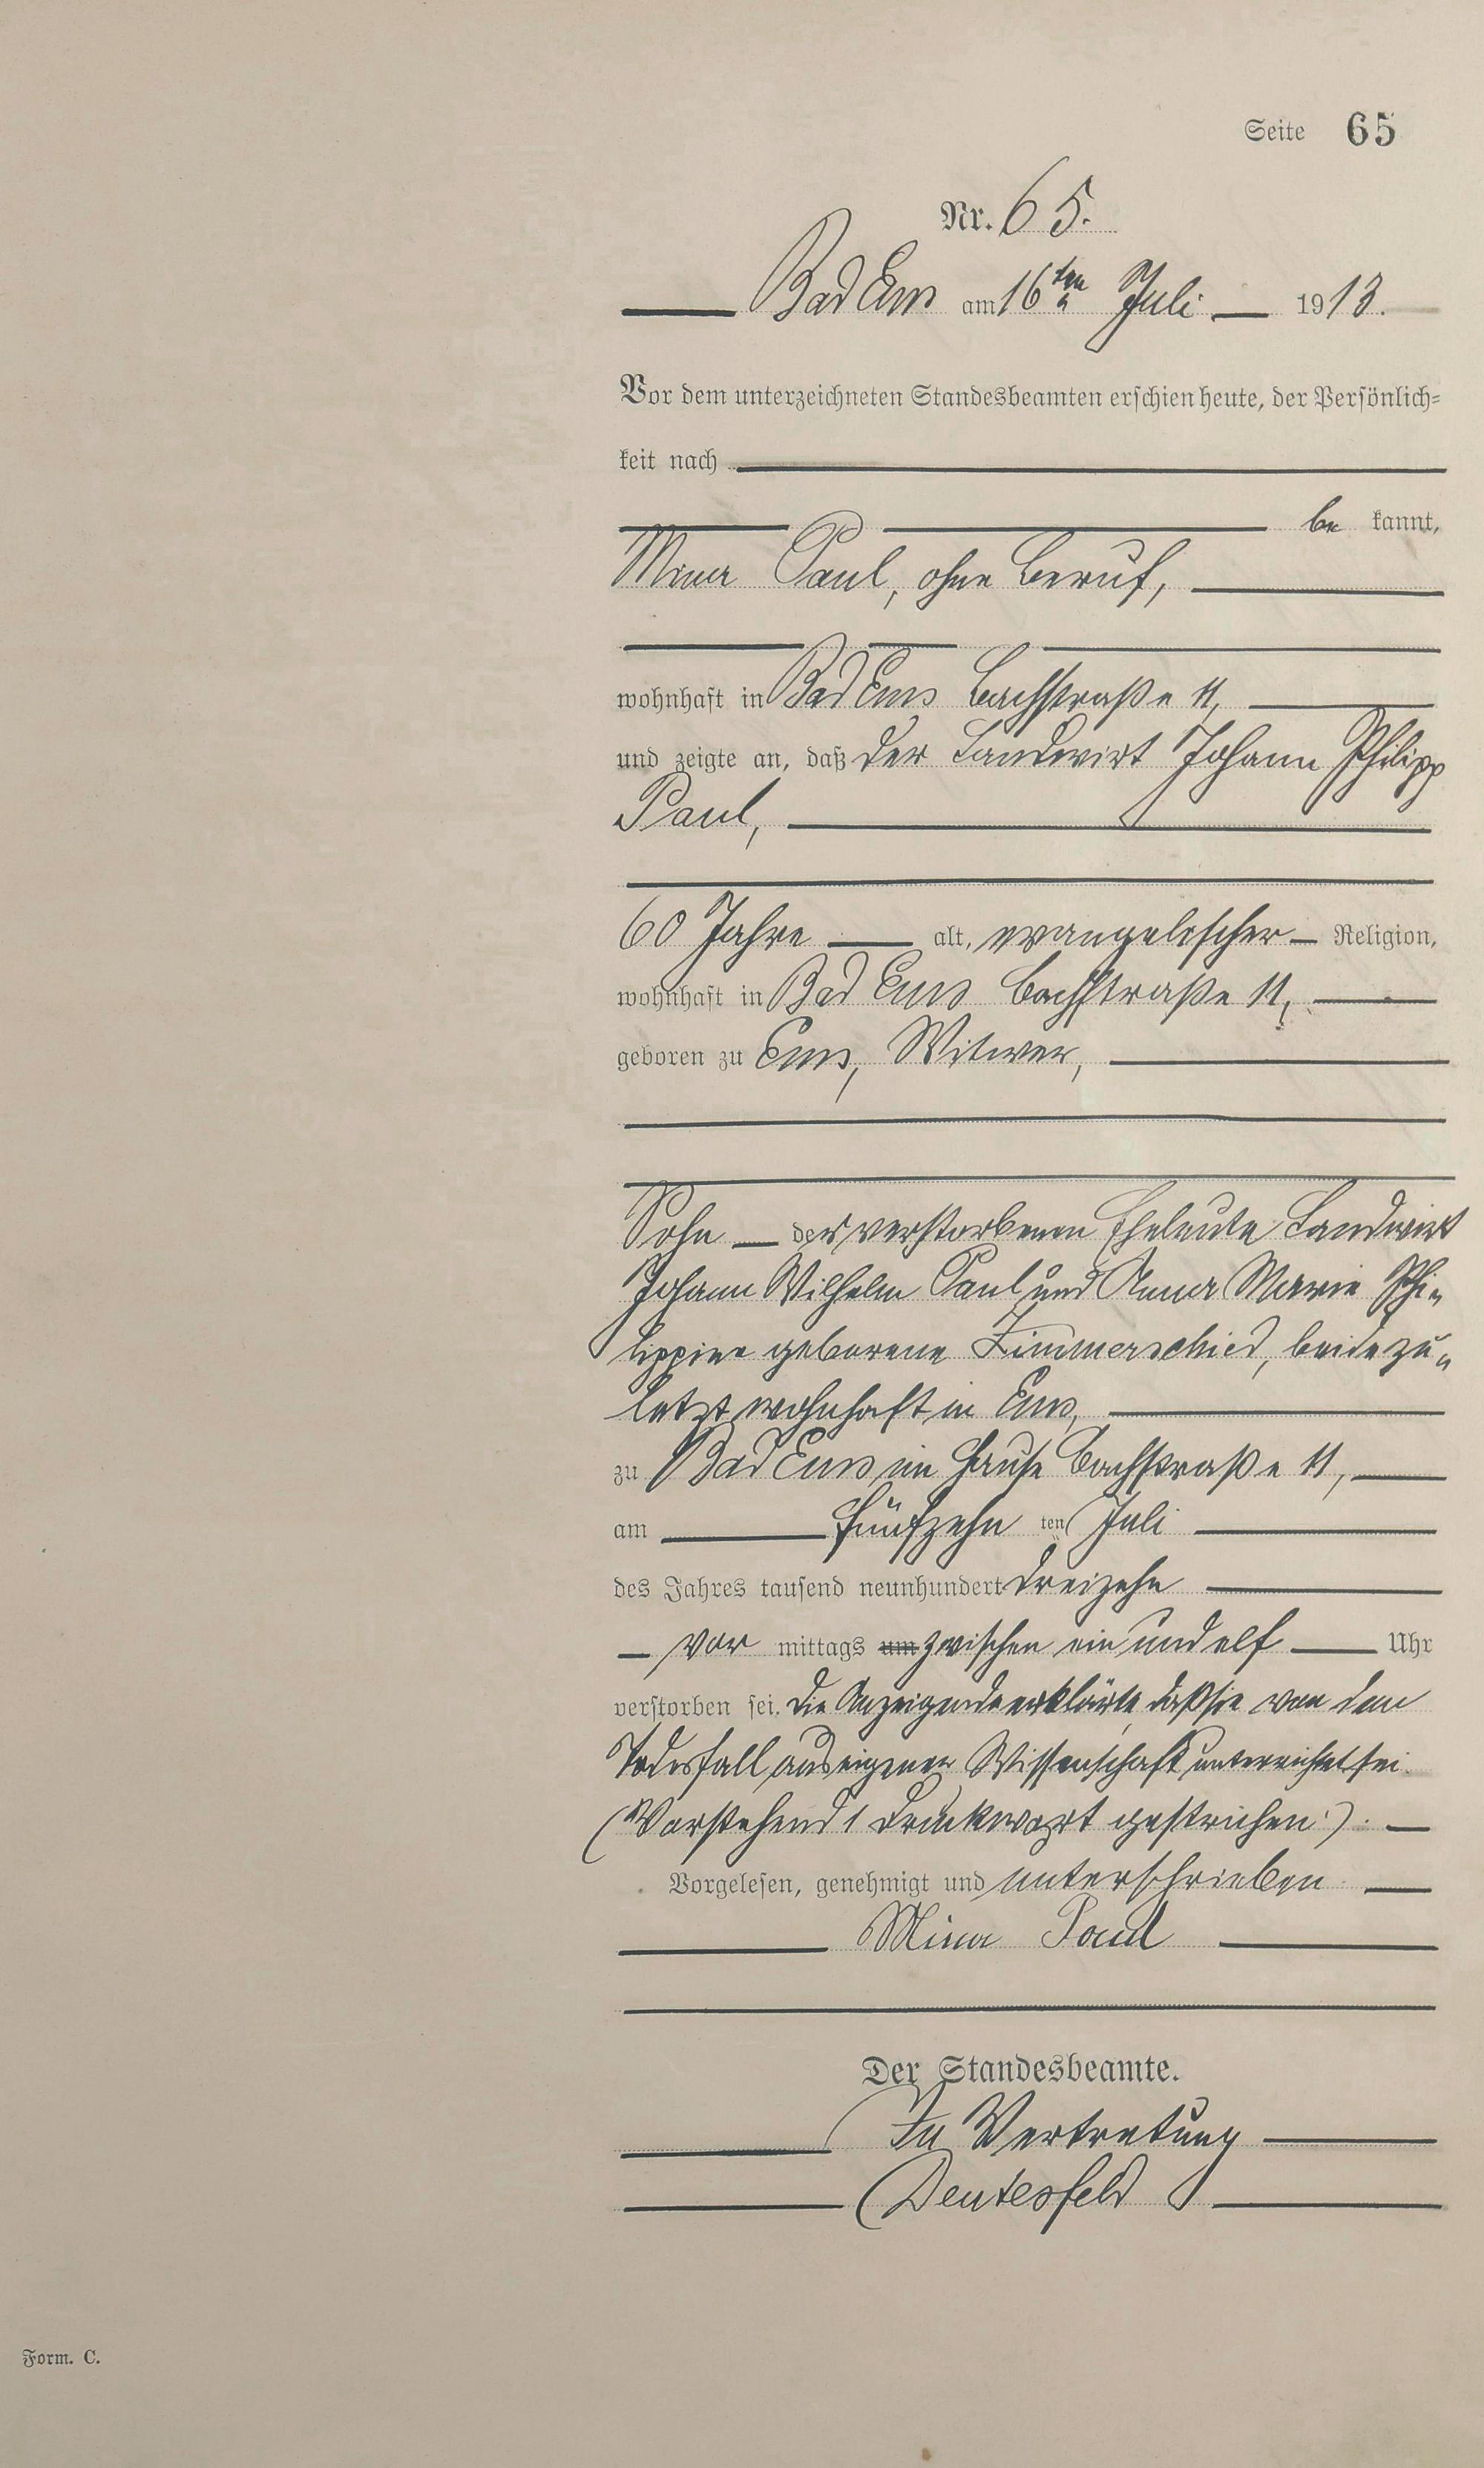 Seite 65
Nr. 65.
Bad Ems am 16ten Juli 1913.
Vor dem unterzeichneten Standesbeamten erschien heute, der Persönlich=
keit nach
be kannt,
Mina Paul, ohne Beruf,
wohnhaft in Bad Ems Bachstraße 11,
und zeigte an, daß der Landwirt Johann Philipp
Paul,
60 Jahre alt, evangelischer Religion,
wohnhaft in Bad Ems Bachstraße 11,
geboren zu Ems, Witwer,
Sohn der verstorbenen Eheleute Landwirt
Johann Wilhelm Paul und Anna Marie Phi=
lippine geborene Zimmerschied, beide zu=
letzt wohnhaft in Ems,
zu Bad Ems im Hause Bachstraße 11,
am fünfzehn ten Juli
des Jahres tausend neunhundert dreizehn
vor mittags um zwischen ein und elf Uhr
verstorben sei. Die Anzeigende erklärte, daß sie von dem
Todesfall aus eigener Wissenschaft unterrichtet sei.
(Vorstehend 1 Druckwort gestrichen.)
Vorgelesen, genehmigt und unterschrieben
Mina Paul
Der Standesbeamte.
In Vertretung
Deutesfeld
Form. C.